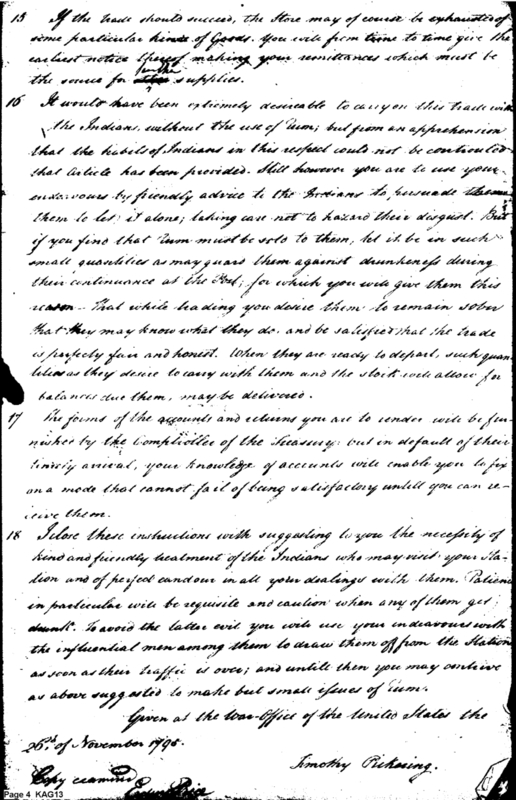 15 If the trade should succeed, the Store may of course be exhausted of
some particular kinds of Goods. You will from time to time give the
earliest notice thereof making your remittances which must be
the source for further supplies.
16 It would have been extremely desireable to carry on this trade with
the Indians, without the use of Rum; but from an apprehension
that the habits of Indians in this respect could not be controuled
that article has been provided. Still however you are to use your
endeavours by friendly advice to the Indians to, persuade
them to let it alone; taking care not to hazard their disgust. But
if you find that Rum must be sold to them, let it be in such
small quantities as may guard them against drunkeness during
their continuance at the Post; for which you will give them this
reason - That while trading you desire them to remain sober
that they may know what they do, and be satisfied that the trade
is perfectly fair and honest. When they are ready to depart, such quan-
tities as they desire to carry with them and the stock will allow for
balances due them, may be delivered.
17 The forms of the accounts and returns you are to render will be fur-
nished by the Comptroller of the Treasury: but in default of their
timely arrival, your knowledge of accounts will enable you to fix
on a mode that cannot fail of being satisfactory untill you can re-
ceive them.
18 I close these instructions with suggesting to you the necessity of
kind and friendly treatment of the Indians who may visit your Sta-
tion and of perfect candour in all your dealings with them. Patience
in particular will be requisite and caution when any of them get
drunk. To avoid the latter evil you will use your endeavours with
the influential men among them to draw them off from the Station
as soon as their traffic is over; and untill then you may contrive
as above suggested to make but small issues of Rum.
Given at the War-Office of the United States the
26th of November 1795.
Timothy Pickering.
Copy examined
Edward Price
Page 4 KAG13